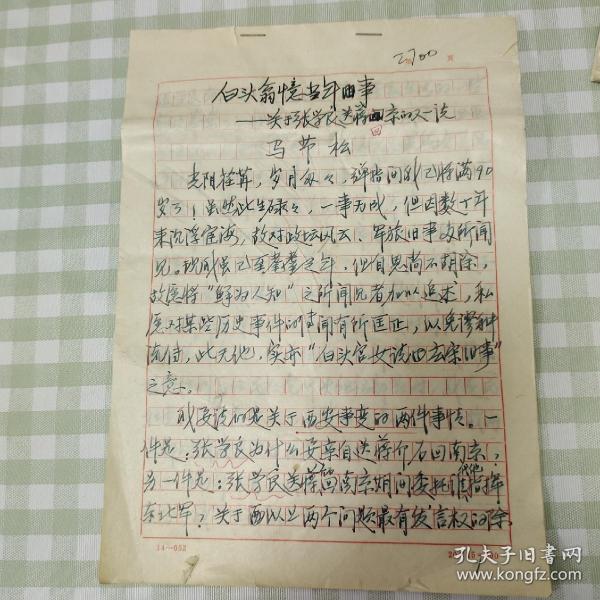 2700 页
白头翁忆当年旧事
——关于张学良送蒋回京的又一说
回
马节松
光阴荏苒，岁月匆々，弹指间我已将满90
岁了！虽然此生碌々，一事无成，但因数十年
来沉浮宦海，故对政坛风云、军旅旧事多所闻
见。现我虽已至耄耋之年，但自思尚不胡涂，
故愿将“鲜为人知”之所闻见者加以追述，私
愿对某些历史事件的传闻有所匡正，以免谬种
流传，此无他，实亦“白头宫女谈说玄宗旧事”
之意。
我要谈的是关于西安事变的两件事情。一
件是：张学良为什么要亲自送蒋介石回南京，
另一件是：张学良送蒋回南京期间委托谁代他指挥
东北军？关于以上两个问题最有发言权的除
14—032
孔夫子旧书网
www.kongfz.com